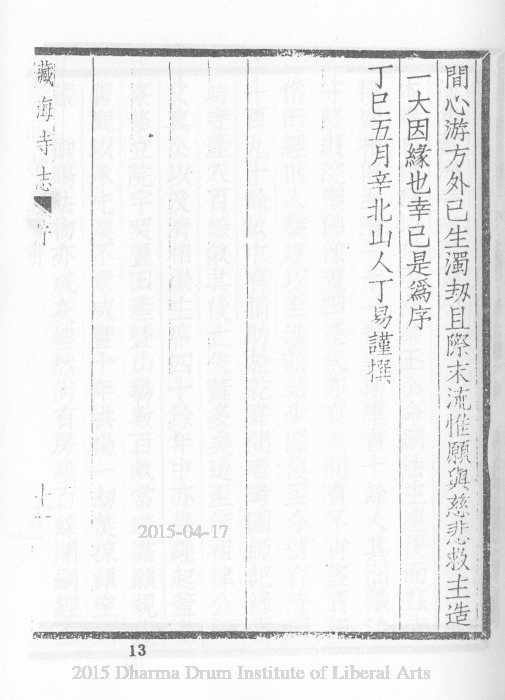 間心游方外已生濁刼且際末流惟願與慈悲救主造
一大因緣也幸已是爲序
丁巳五月辛北山人丁易謹撰
藏海寺志 序
十一
2015-04-17
13
2015 Dharma Drum Institute of Liberal Arts